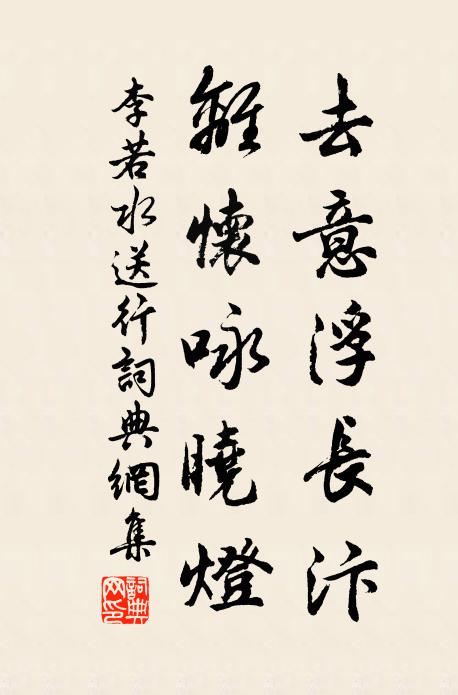 去意浮長汴
離懷咏曉燈
李若水送行詞典網集
詞典网印